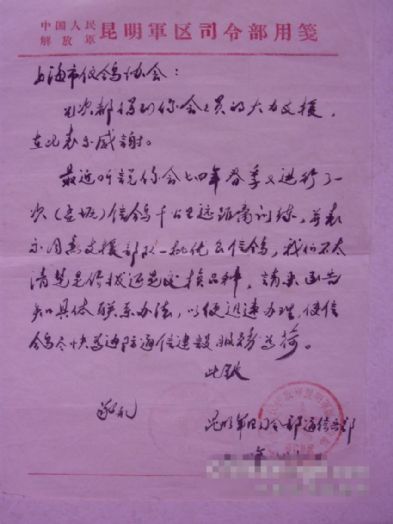 中国人民
解放军 昆明軍区司令部用箋
上海市信鸽协会：
兄次都得到你会之员的大力支援，
在此表示感謝。
最近听説你会七四年春季又進行了一
次（宝坻）信鸽千公里远距离训练，并表
示同意支援部队一批优良信鸽，我们不太
清楚是僻拔还是交換品种，請来函告
知具体联系办法，以便迅速办理，使信
鸽尽快為边防通信建設服務為荷。
此致
敬礼
昆明军区司令部通信兵部